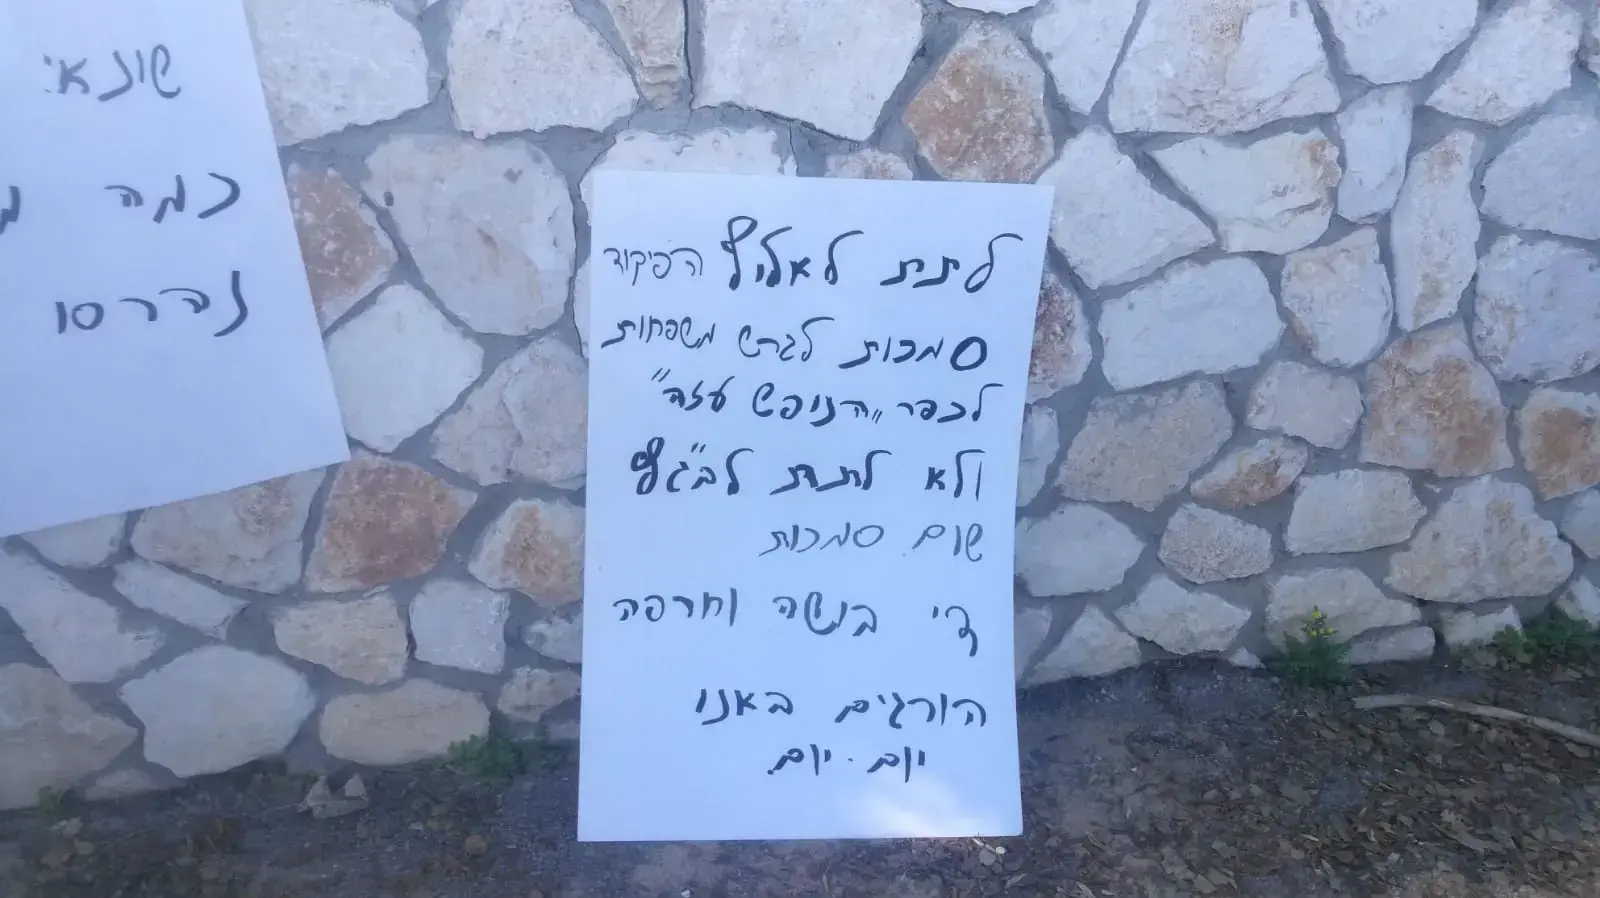 שונאי
כמה
נדרסו
לתת לאלוף הפיקוד
סמכות לגרש משפחות
לכפר "הנופש עזה"
ולא לתת לבג"ץ
שום סמכות
די בושה וחרפה
הורגים באנו
יום. יום.